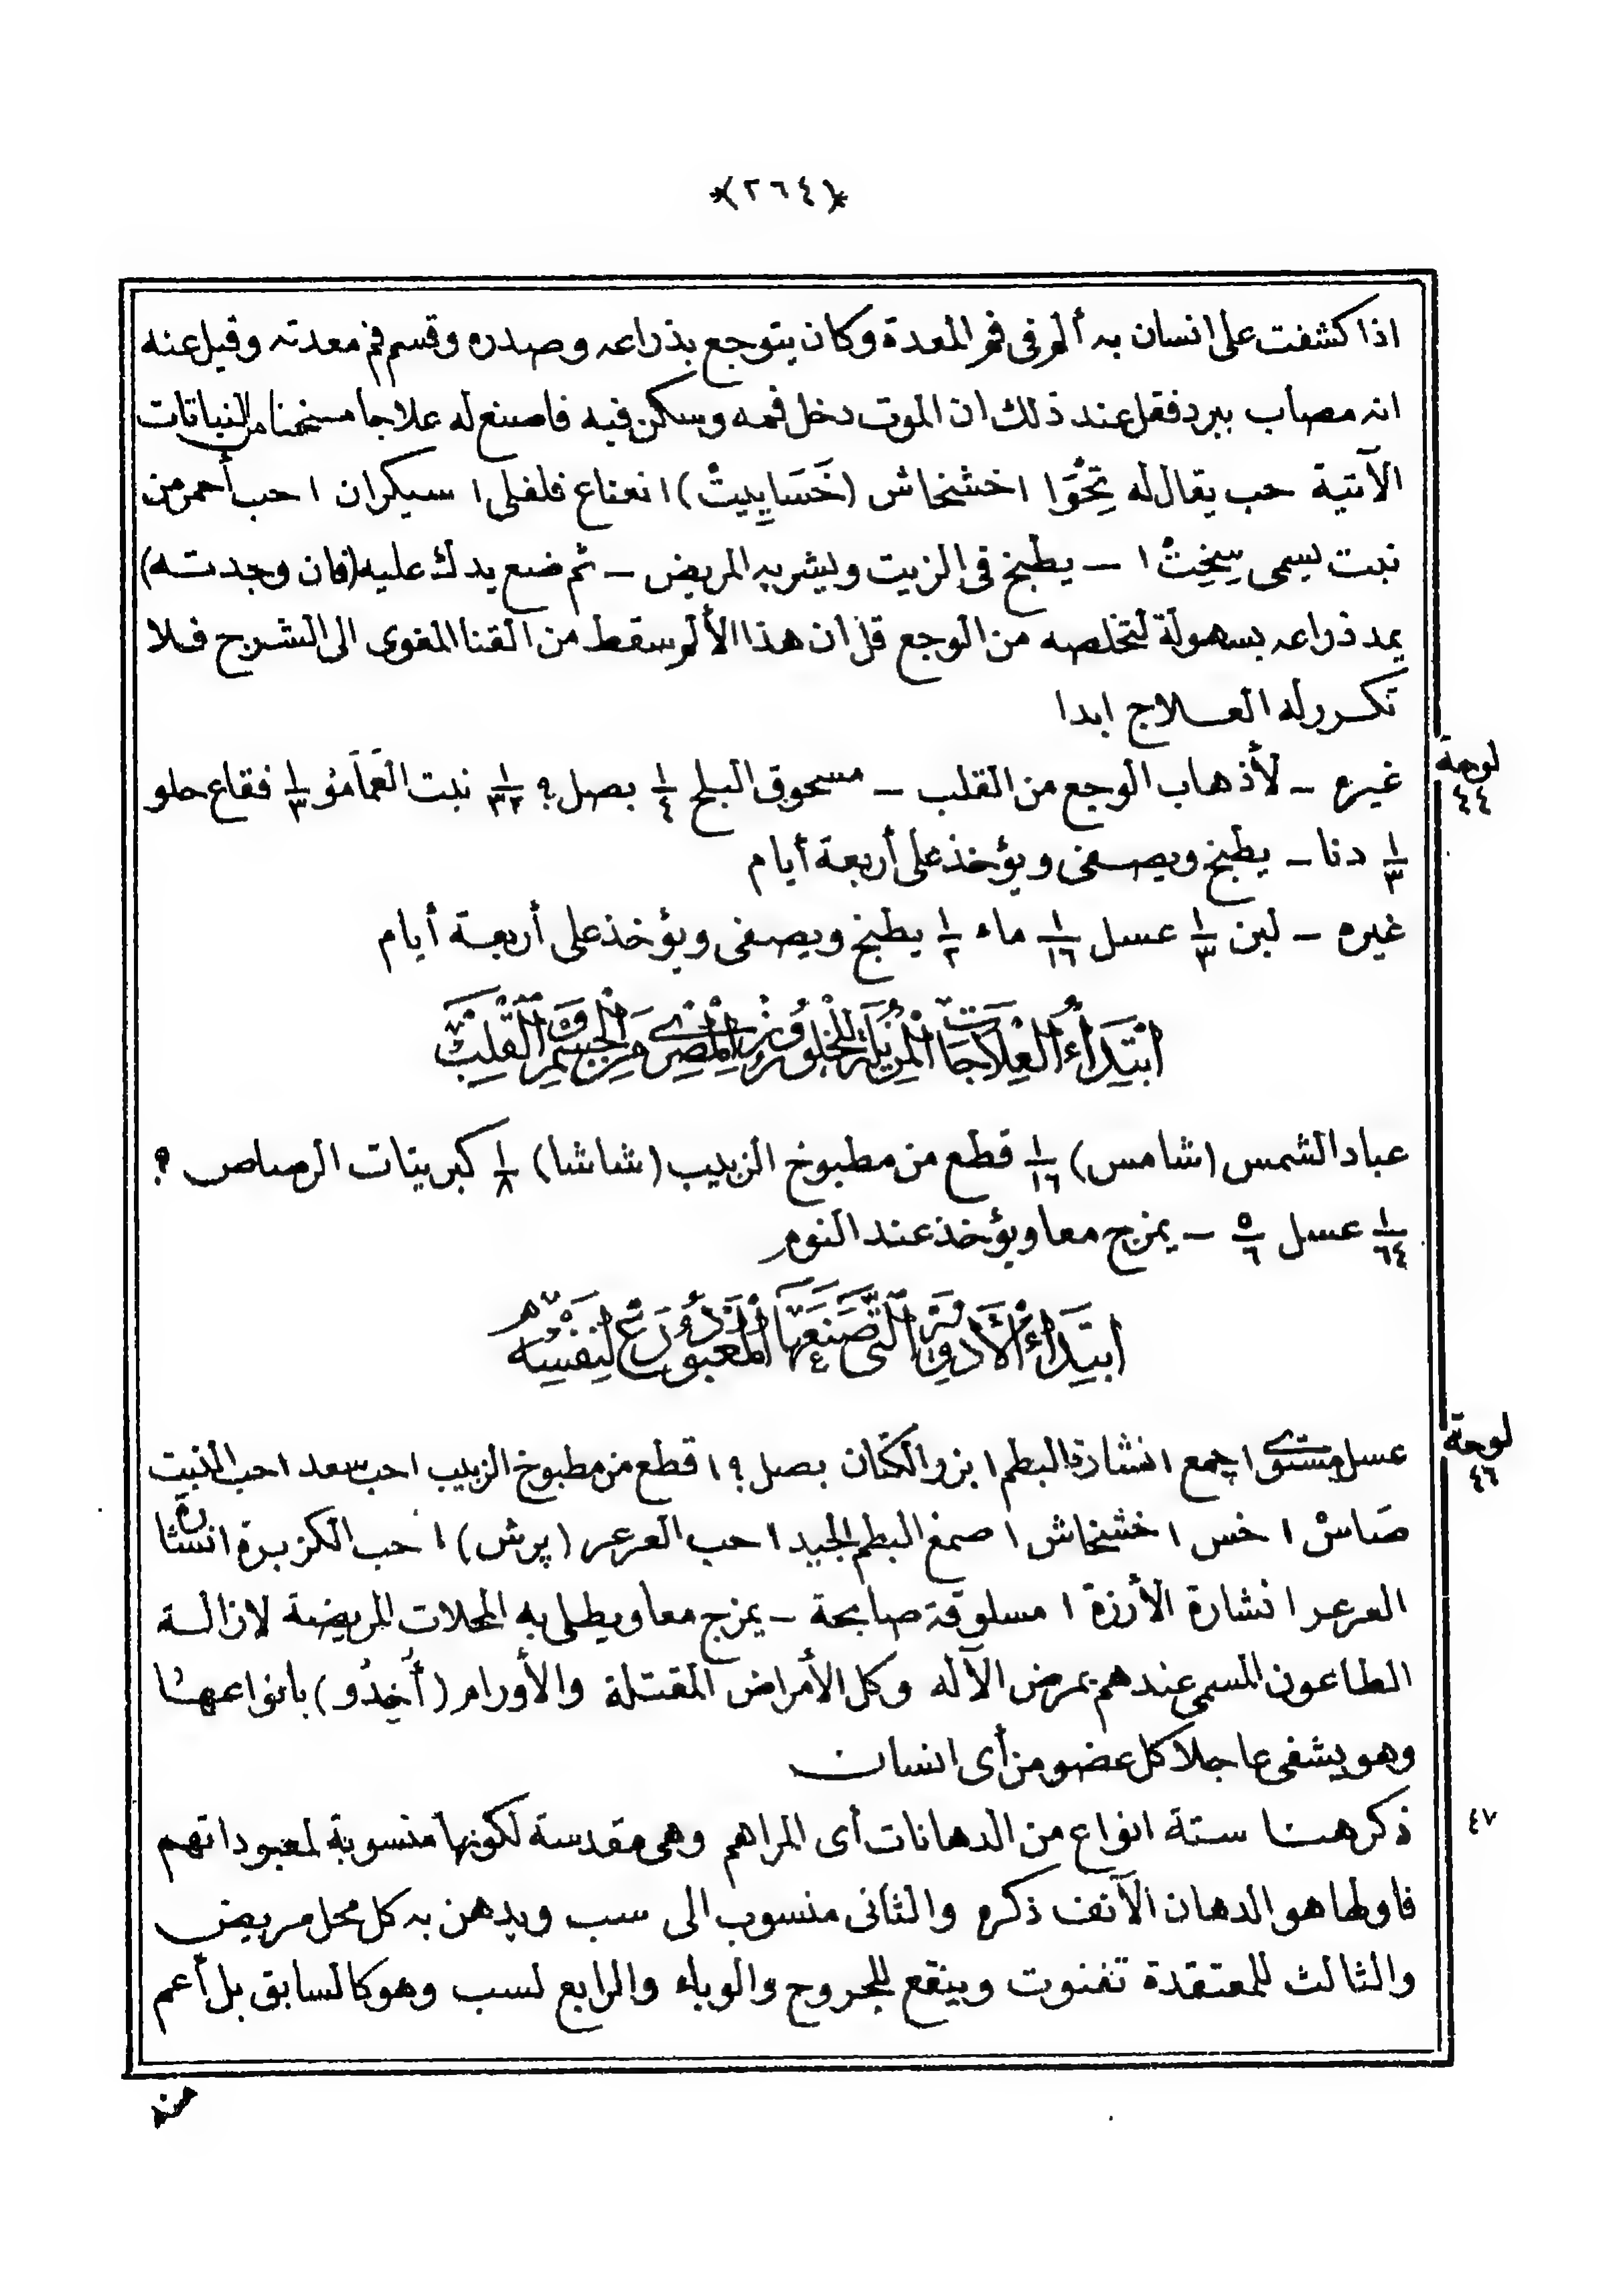 *(٢٦٤)*
اذا كشفت على انسان به ألم فى فم المعدة وكان يتوجع بذراعه وصدره وقسم فم معدته وقيل عنه
انه مصاب ببرد فقل عند ذلك ان الموت دخل فمه وسكن فيه فاصنع له علاجا مسخنا من النباتات
الآتية حب يقال له تِحُوَا ١ خشخاش (خَسَايِيتْ) ١ نعناع فلفلى ١ سيكران ١ حب أحمر من
نبت يسمى سِخِتْ ١ — يطبخ فى الزيت ويشربه المريض — ثم ضع يدك عليه (فان وجدته)
يمد ذراعه بسهولة لتخلصه من الوجع قل ان هذا الألم سقط من القنا المغوى الى الشرج فلا
تكرر له العلاج ابدا
لوحة
٤٤
غيره — لأذهاب الوجع من القلب — مسحوق البلح ١/٤ بصل ؟ ١/٣٢ نبت العَمَامُو ١/٣ فقاع حلو
١/٣ دنا — يطبخ ويصفى ويؤخذ على أربعة أيام
غيره — لبن ١/٣ عسل ١/١٦ ماء ١/٢ يطبخ ويصفى ويؤخذ على أربعة أيام
ابتداء العلاجات المزيلة للخلوز المضرى من الجسم والقلب
عباد الشمس (شامس) ١/١٦ قطع من مطبوخ الزبيب (شاشا) ١/٨ كبريتات الرصاص ؟
١/٦٤ عسل ٥/٦ — يمزج معا ويؤخذ عند النوم
ابتداء الأدوية التى صنعها المعبود رع لنفسه
لوحة
٤٦
عسل مستوى ١ چمع ١ نشارة البطم ١ بزر الكتان بصل ؟ ١ قطع من مطبوخ الزبيب ١ حب سعد ١ حب النبيت
صَاسْ ١ خس ١ خشخاش ١ صمغ البطم الجيد ١ حب العرعر (پرش) ١ حب الكزبرة ١ نشارة
العرعر ١ نشارة الأرزة ١ مسلوقة صابحة — يمزج معا ويطلى به المحلات المريضة لازالة
الطاعون المسمى عندهم بمرض الآله وكل الأمراض المقتلة والأورام (أُخِدُو) بانواعها
وهو يشفى عاجلا كل عضو من أى انسان
٤٧
ذكر هنا ستة انواع من الدهانات أى المراهم وهى مقدسة لكونها منسوبة لمعبوداتهم
فاولها هو الدهان الآنف ذكره والثانى منسوب الى سب ويدهن به كل محل مريض
والثالث للمعتقدة تفنوت وينفع للجروح والوباء والرابع لسب وهو كالسابق بل أعم
منه